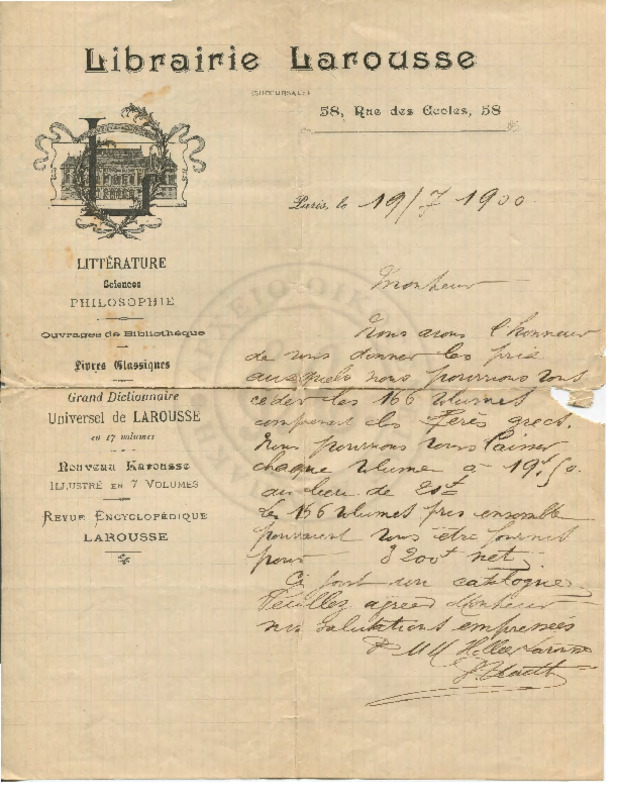 Librairie Larousse
(SUCCURSALE)
58, Rue des Ecoles, 58
Paris, le 19/7 1900
L
LITTÉRATURE
Sciences
PHILOSOPHIE
Ouvrages de Bibliothèque
Livres Classiques
Grand Dictionnaire
Universel de LAROUSSE
en 17 volumes
Nouveau Larousse
ILLUSTRÉ EN 7 VOLUMES
REVUE ENCYCLOPÉDIQUE
LAROUSSE
Monsieur
Nous avons l'honneur
de vous donner les prix
auxquels nous pourrions vous
céder les 166 volumes
comprenant les Pères grecs.
Nous pourrions vous laisser
chaque volume à 19f,50
au lieu de 20f
Les 166 volumes pris ensemble
pourraient vous être fournis
pour 3200f net.
Ci joint un catalogue.
Veuillez agréer Monsieur
nos salutations empressées
P. MM Larousse